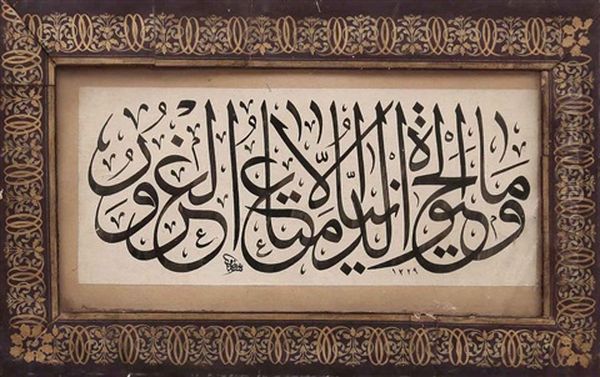 وما الحيوة الدنيا الا متاع الغرور
١٣٢٩